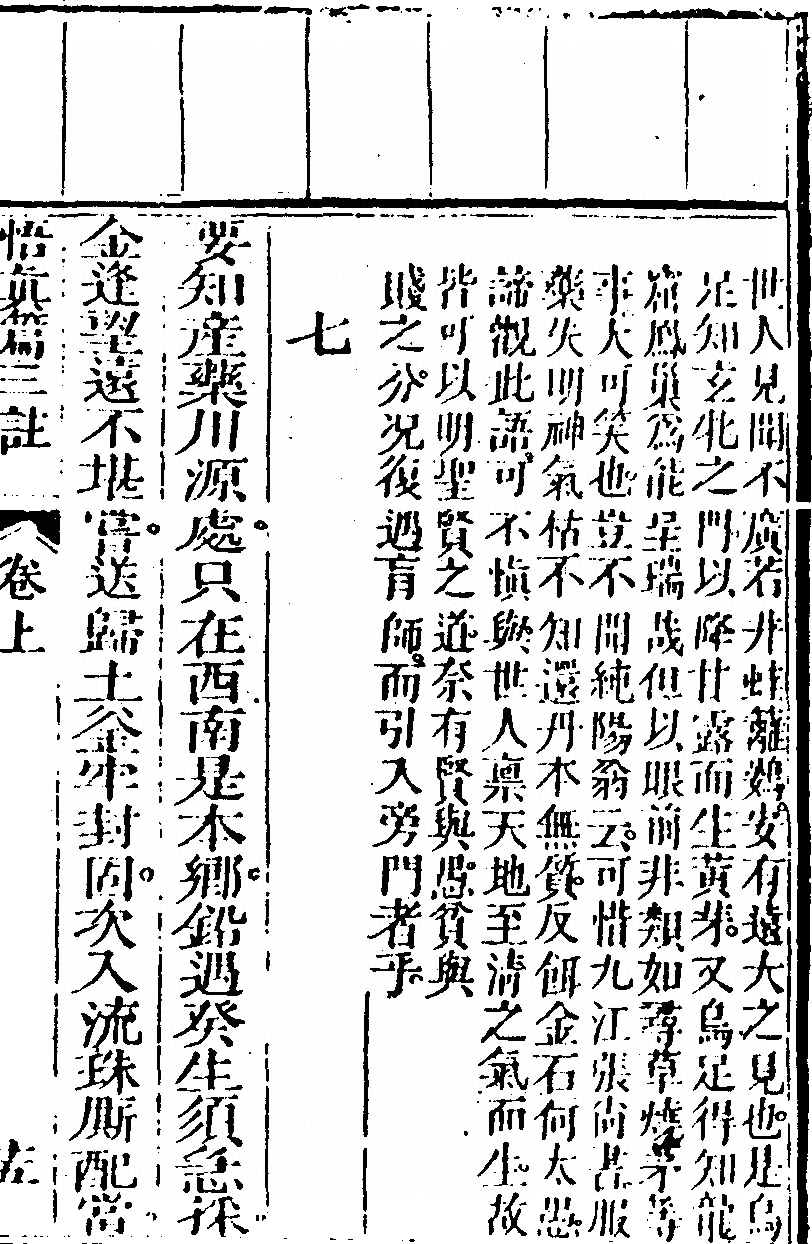 世人見聞不廣若井蛙籬鷃安有遠大之見也是烏
足知玄牝之門以降甘露而生黃芽又烏足得知龍
窟鳳巢爲能呈瑞哉但以眼前非類如尋草燒茅等
事大可笑也豈不聞純陽翁云可惜九江張尚書服
藥失明神氣枯不知還丹本無質反餌金石何太愚
諦觀此語可不愼與世人禀天地至清之氣而生故
皆可以明聖賢之道奈有賢與愚貧與
賤之分况復遇盲師而引入旁門者乎
七
要知産藥川源處只在西南是本鄉鉛遇癸生須急採
金逢望遠不堪嘗送歸土釜牢封固次入流珠厮配當
悟真篇三註 卷上 左